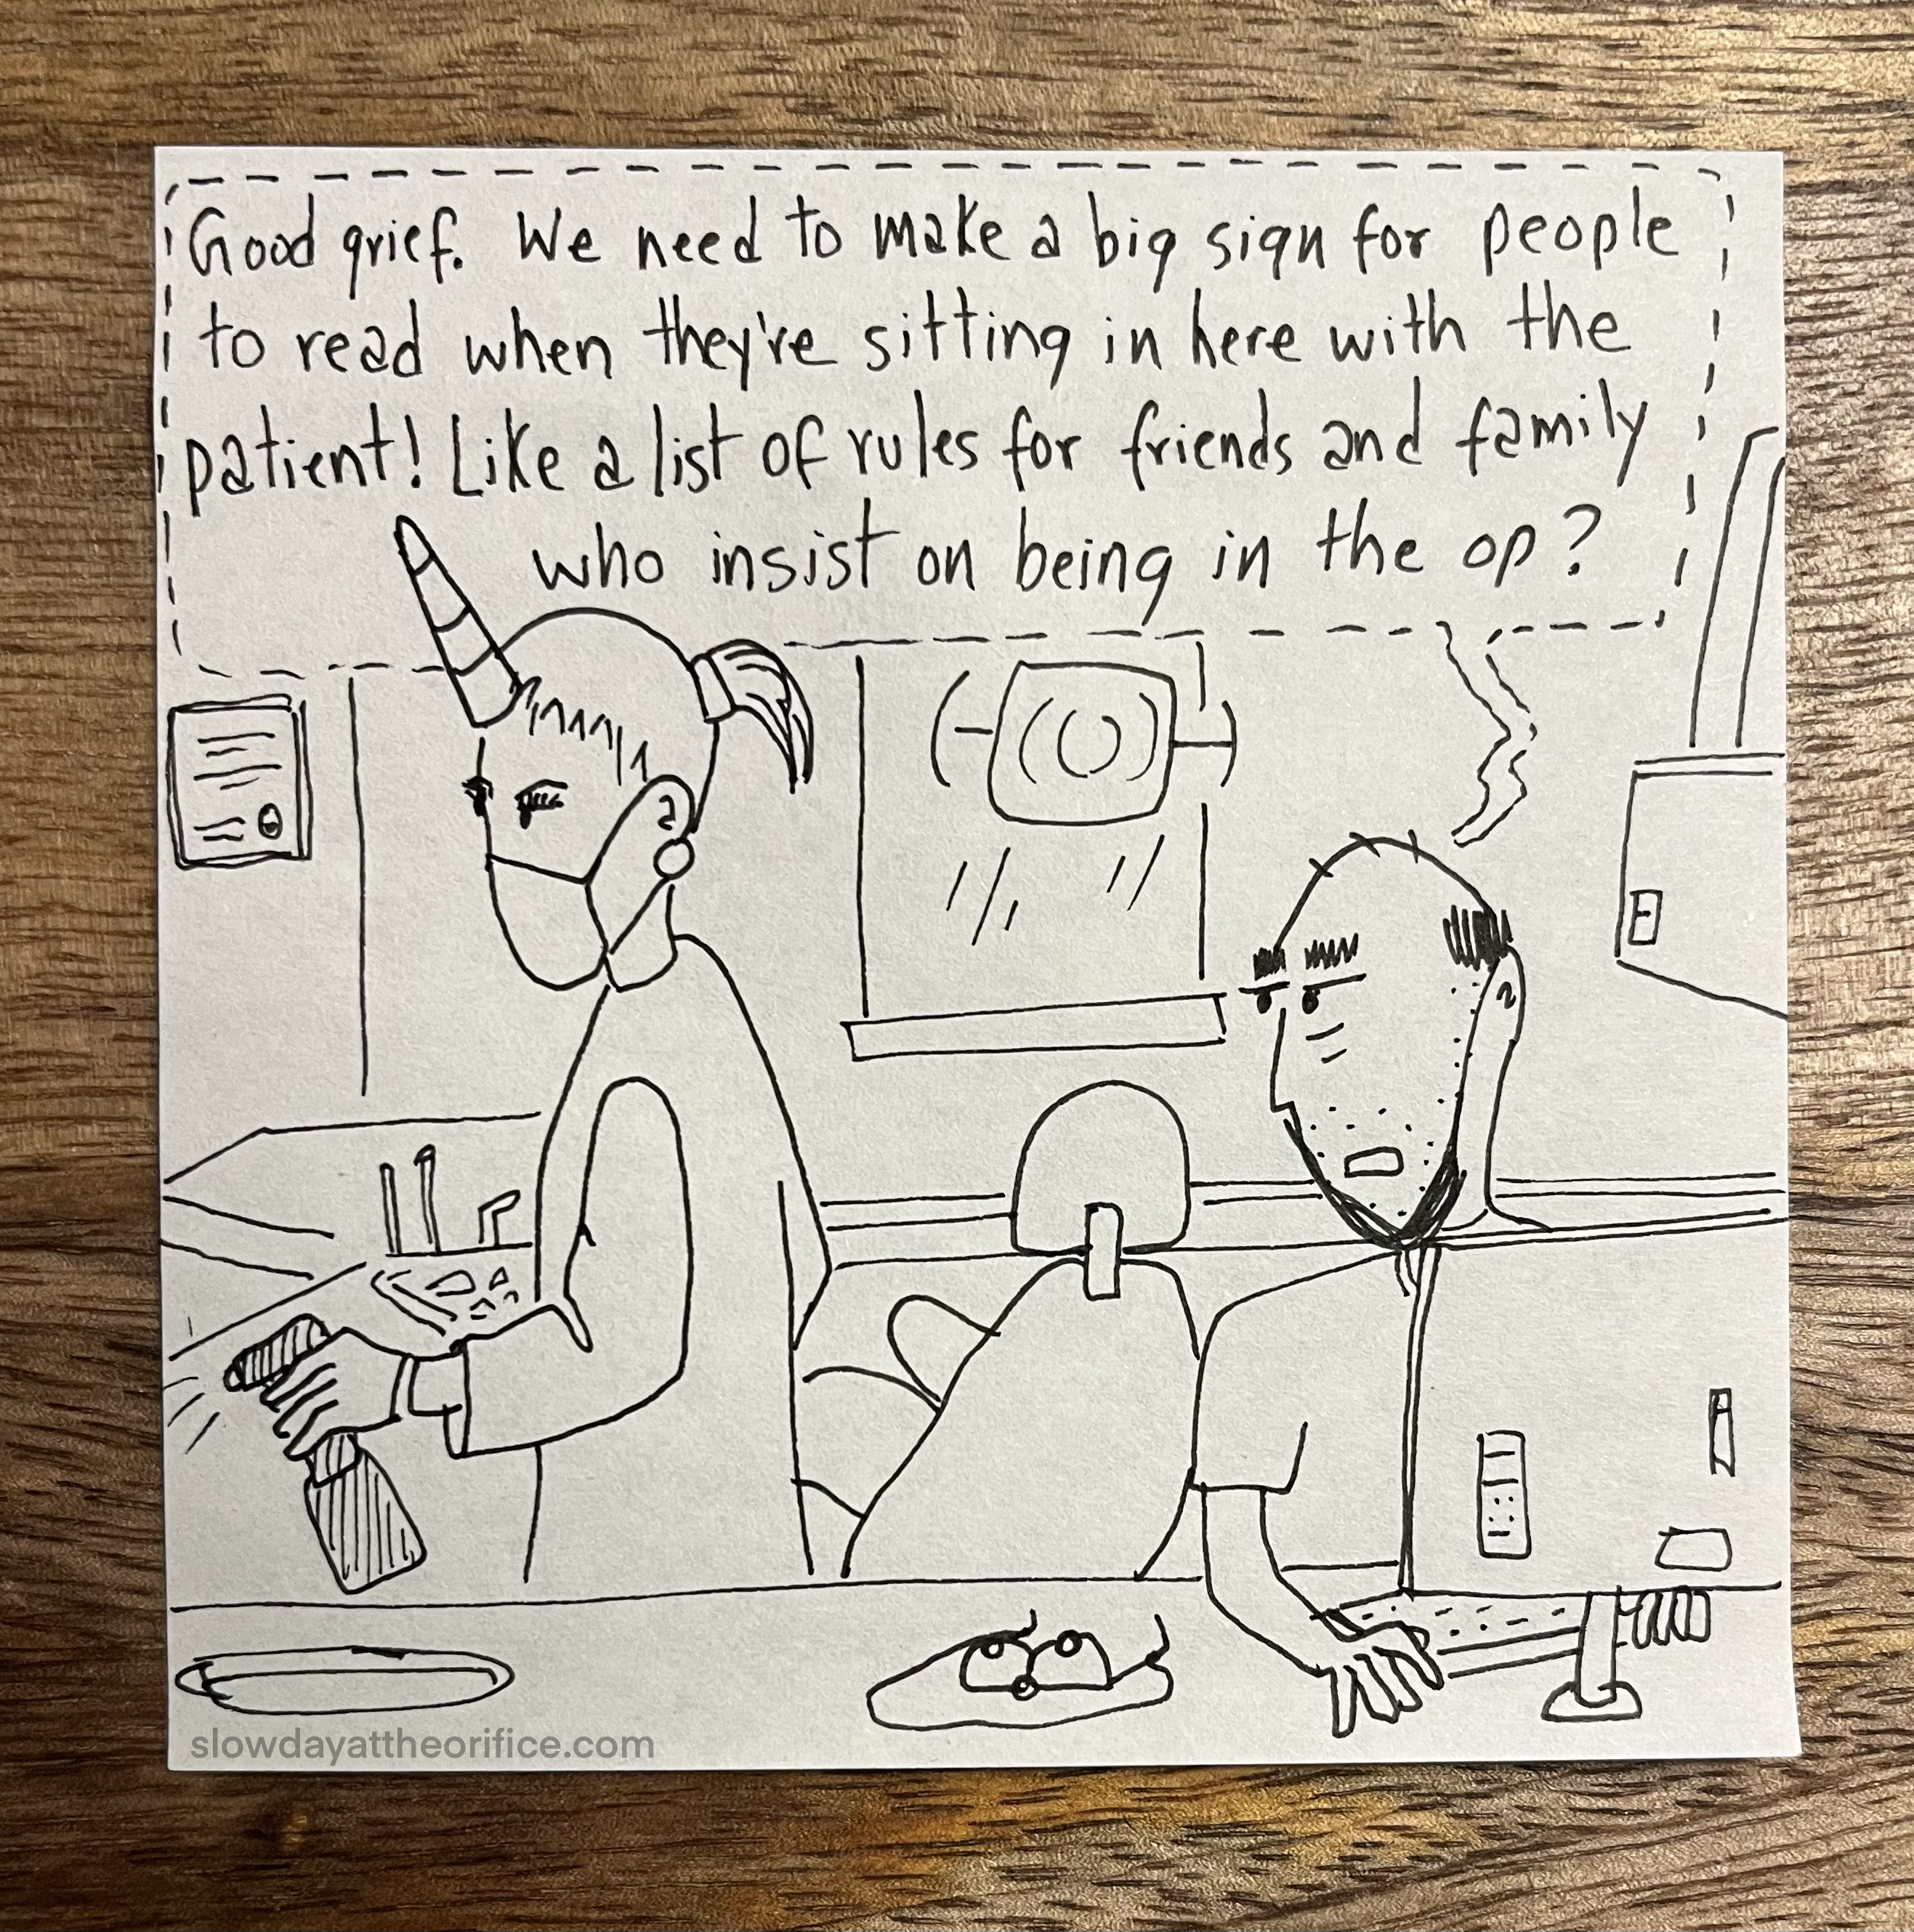 Good grief. We need to make a big sign for people
to read when they're sitting in here with the
patient! Like a list of rules for friends and family
who insist on being in the op?
slowdayattheorifice.com